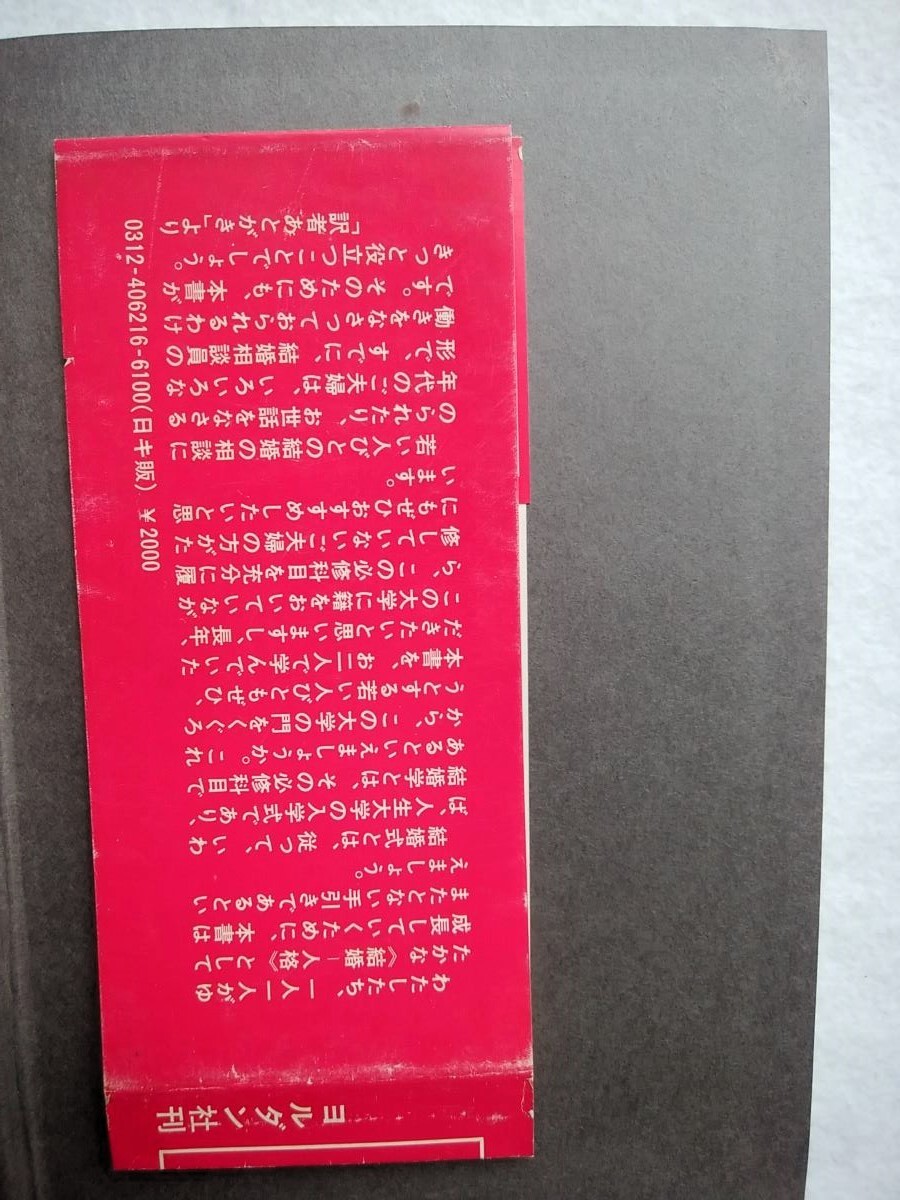 わたしたち、一人一人がゆ
たかな《結婚―人格》として
成長していくために、本書は
またとない手引きであるとい
えましょう。
結婚式とは、従って、いわ
ば、人生大学の入学式であり、
結婚学とは、その必修科目で
あるといえましょうか。これ
から、この大学の門をくぐろ
うとする若い人びともぜひ、
本書を、お二人で学んでいた
だきたいと思いますし、長年、
この大学に籍をおいていなが
ら、この必修科目を充分に履
修していないご夫婦の方がた
にもぜひおすすめしたいと思
います。
若い人びとの結婚の相談に
のられたり、お世話をなさる
年代のご夫婦は、いろいろな
形で、すでに、結婚相談員の
働きをなさっておられるわけ
です。そのためにも、本書が
きっと役立つことでしょう。
「訳者あとがき」より
0312-406216-6100(日キ販) ¥2000
ヨルダン社刊